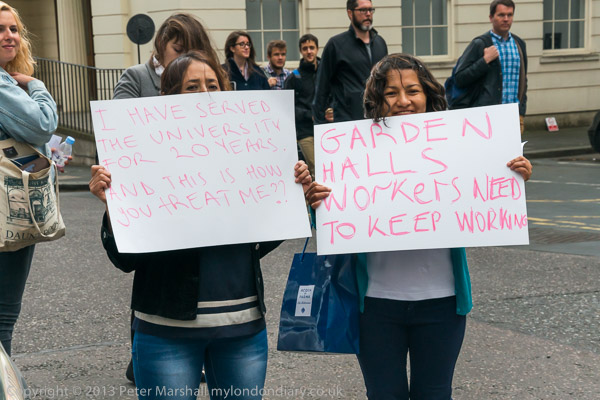 I HAVE SERVED
THE UNIVERSITY
FOR 20 YEARS.
AND THIS IS HOW
YOU TREAT ME??
GARDEN
HALLS
WORKERS NEED
TO KEEP WORKING
Copyright © 2013 Peter Marshall mylondondiary.co.uk